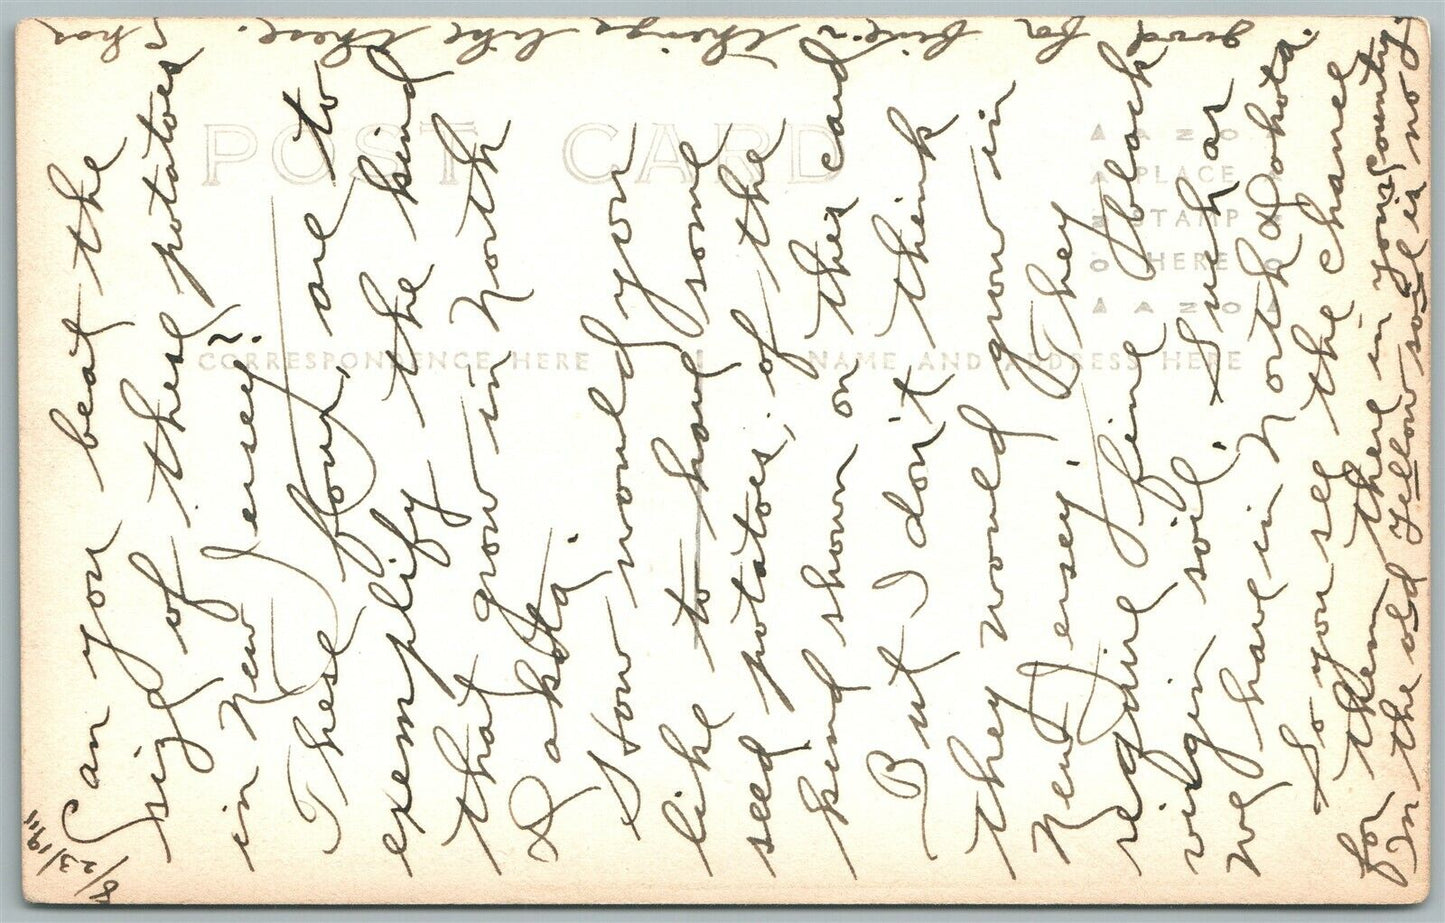 8/23/1911
Can you beat the
size of these potatoes
in New Jersey?
These four, are to
exemplify the kind
that grow in North
Dakota.
How would you
like to have some
seed potatoes, of the
kind shown on this card
But I don't think
they would grow in
New Jersey. They
require fine black
virgin soil. Such as
we have in North Dakota.
So you see the chance
for them there in your county
in the old yellow soil is no
good for finer things like these.
Chas
POST CARD
CORRESPONDENCE HERE
NAME AND ADDRESS HERE
AZO
PLACE
STAMP
HERE
AZO